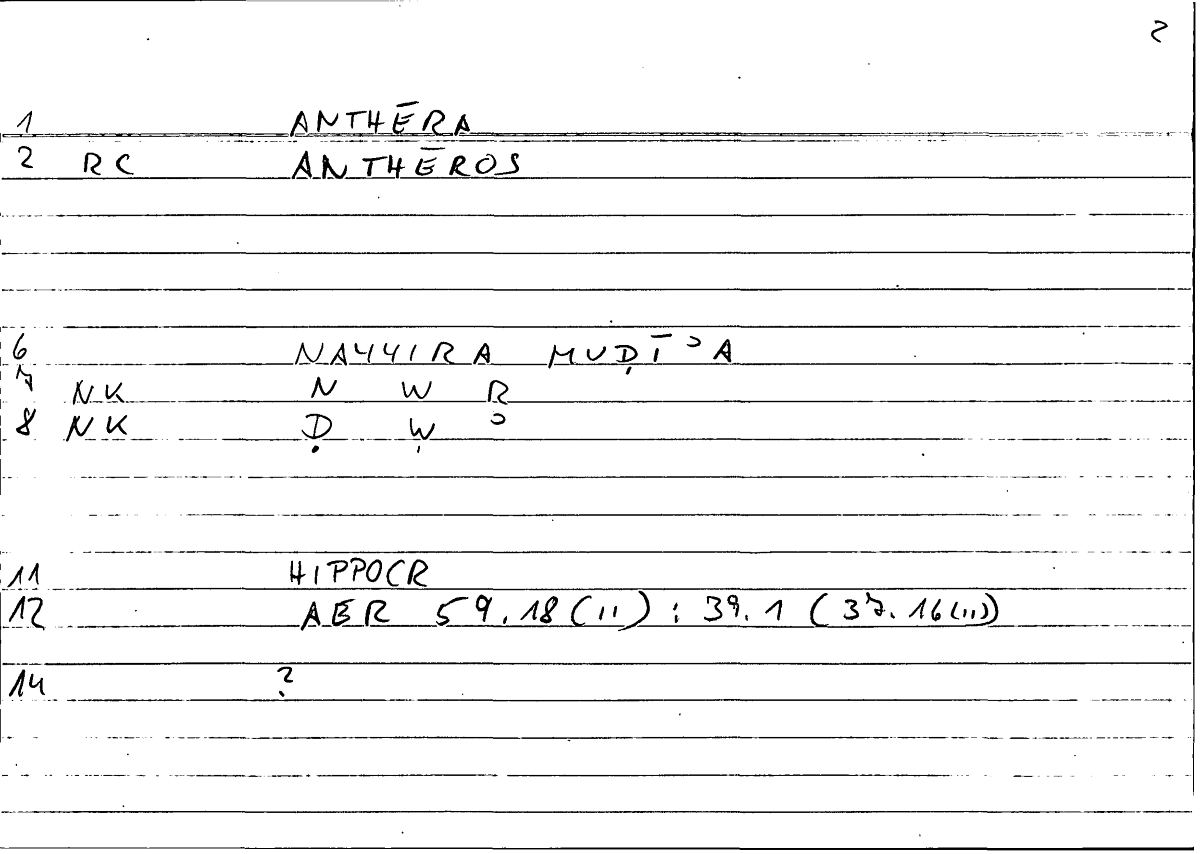 2
1 ANTHĒRA
2 RC ANTHĒROS
6 NAYYIRA MUḌĪʾA
7 NK N W R
8 NK Ḍ W ʾ
11 HIPPOCR
12 AER 59.18(11) : 39.1 (37.16(11))
14 ?